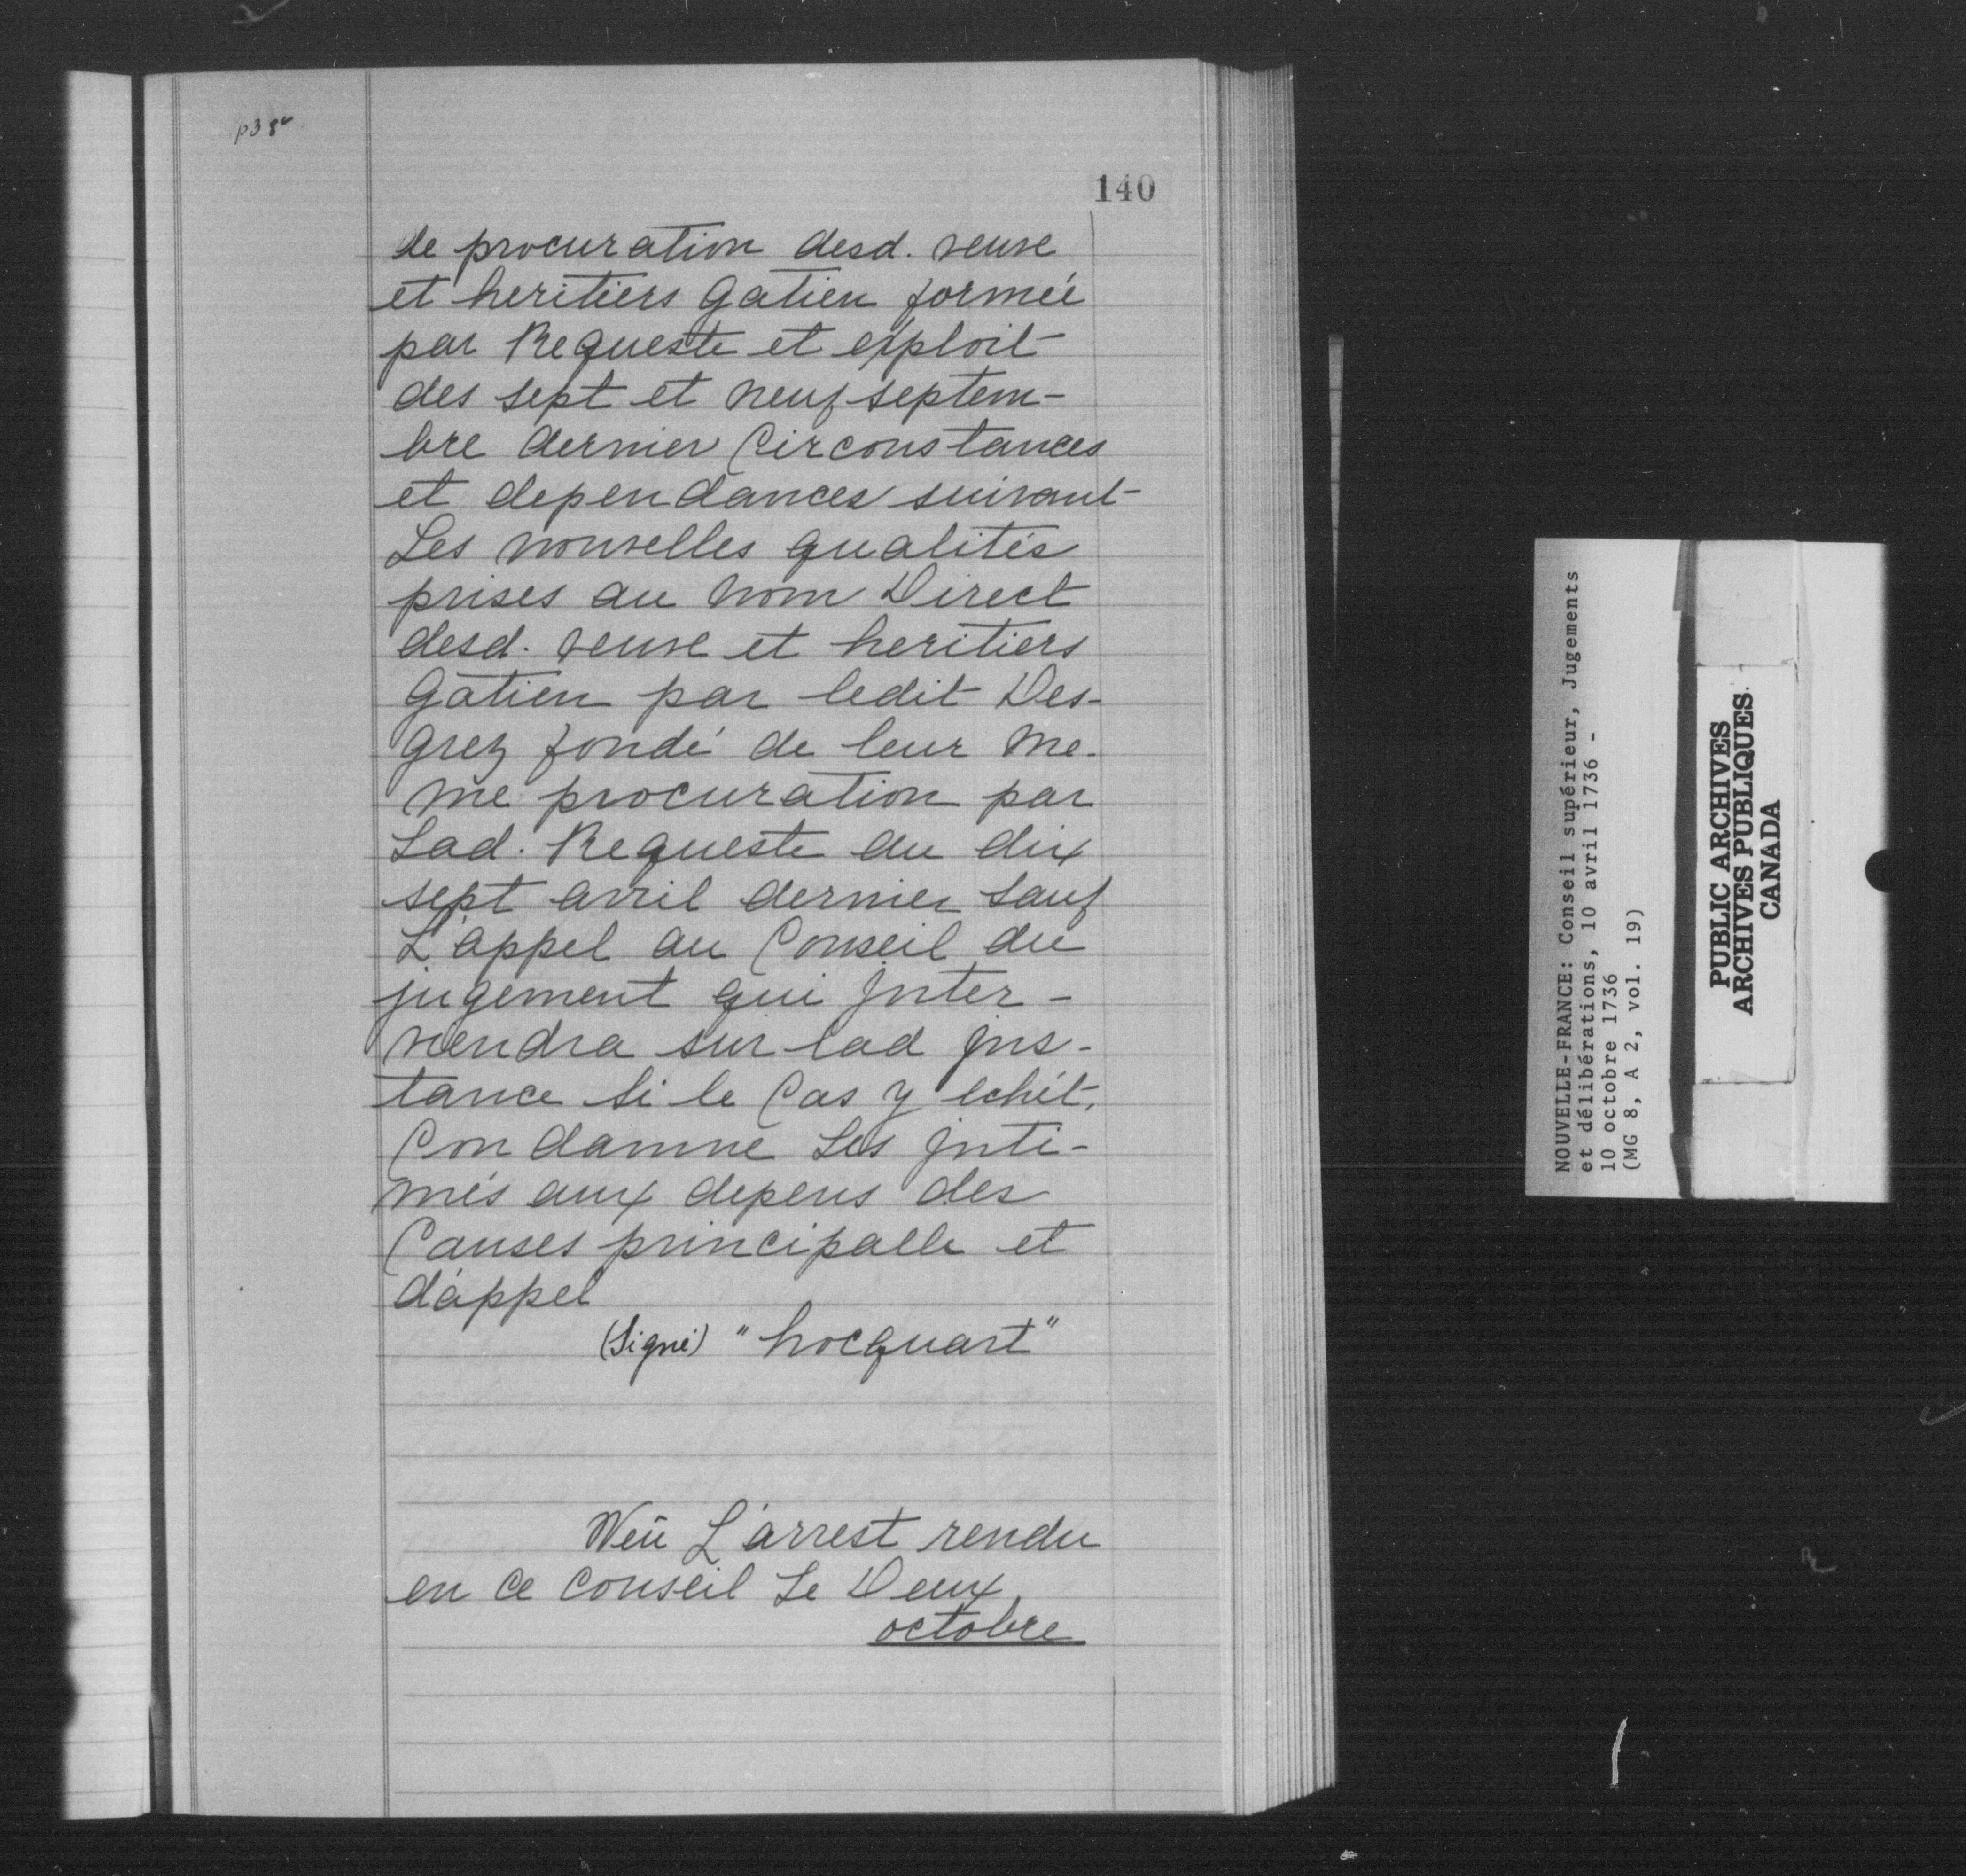 p38v
140
de procuration desd. veuve
et heritiers Gatien formée
par Requeste et exploit
des sept et neuf septem-
bre dernier Circonstances
et dependances suivant
Les nouvelles qualités
prises au nom Direct
desd. veuve et heritiers
Gatien par ledit Des-
grez fondé de leur me-
me procuration par
Lad. Requeste du dix
sept avril dernier sauf
L'appel au Conseil du
jugement qui Inter-
viendra sur lad Ins-
tance Si le Cas y echét.
Condamne Les Inti-
més aux depens des
Causes principalle et
d'appel
(Signé) "hocquart"
Veü L'arrest rendu
en ce Conseil Le Deux
octobre
NOUVELLE-FRANCE: Conseil supérieur, Jugements
et délibérations, 10 avril 1736 -
10 octobre 1736
(MG 8, A 2, vol. 19)
PUBLIC ARCHIVES
ARCHIVES PUBLIQUES
CANADA